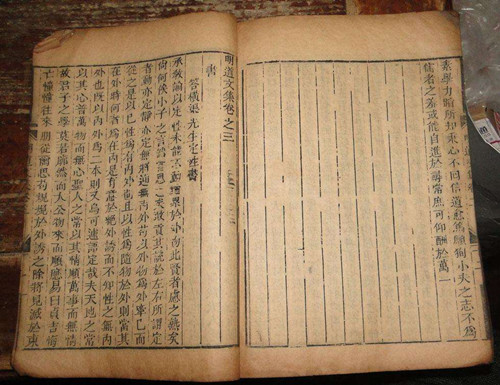 素學力晤所知秉心不回信道愈篤願狥小夫之志不爲
儒者之羞或能自進於尋常庶可仰酬於萬一
明道文集卷之三
書
答橫渠先生定性書
承教諭以定性未能不動猶累於外物此賢者慮之熟矣
尚何俟小子之言然嘗思之矣敢貢其說於左右所謂定
者動亦定靜亦定無將迎無內外苟以外物爲外牽己而
從之是以己性爲有內外也且以性爲隨物於外則當其
在外時何者爲在內是有意於絕外誘而不知性之無內
外也既以內外爲二本則又烏可遽語定哉夫天地之常
以其心普萬物而無心聖人之常以其情順萬事而無情
故君子之學莫若廓然而大公物來而順應易曰貞吉悔
亡憧憧往來朋從爾思苟規規於外誘之除將見滅於東